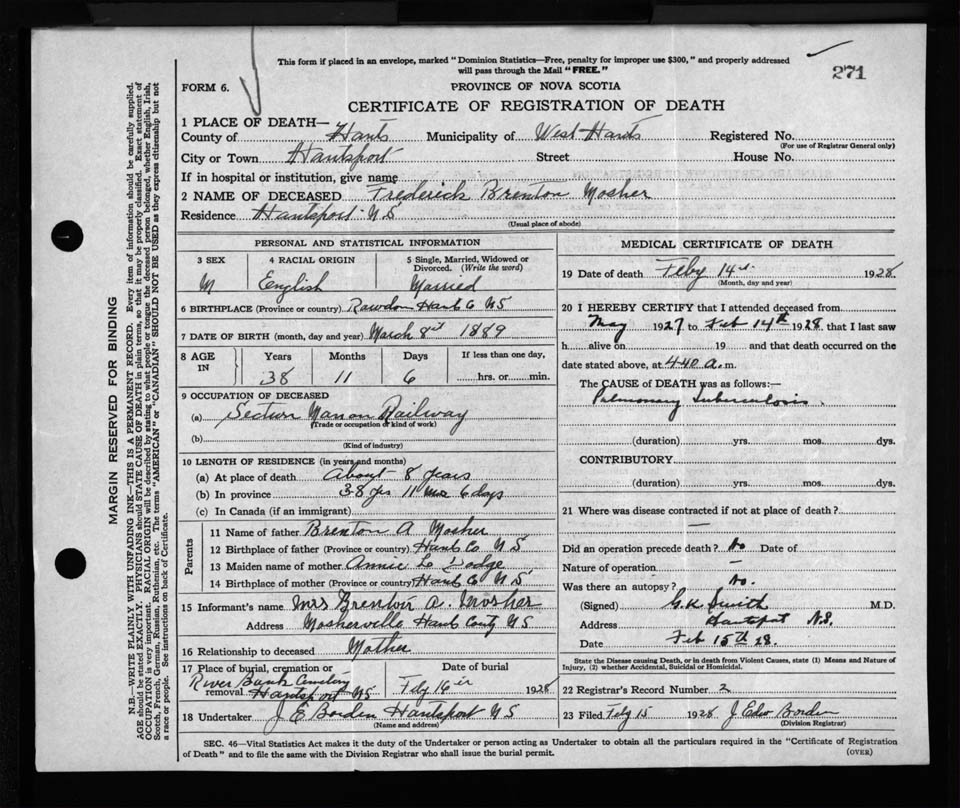 This form if placed in an envelope, marked "Dominion Statistics—Free, penalty for improper use $300," and properly addressed
will pass through the Mail "FREE."
271
FORM 6.
PROVINCE OF NOVA SCOTIA
CERTIFICATE OF REGISTRATION OF DEATH
1 PLACE OF DEATH—
County of Hants Municipality of West Hants Registered No.
(For use of Registrar General only)
City or Town Hantsport Street House No.
If in hospital or institution, give name
2 NAME OF DECEASED Frederick Brenton Mosher
Residence Hantsport N S
(Usual place of abode)
PERSONAL AND STATISTICAL INFORMATION
3 SEX 4 RACIAL ORIGIN 5 Single, Married, Widowed or Divorced. (Write the word)
M English Married
6 BIRTHPLACE (Province or country) Rawdon Hants Co NS
7 DATE OF BIRTH (month, day and year) March 8st 1889
8 AGE IN Years Months Days If less than one day,
38 11 6 hrs. or min.
9 OCCUPATION OF DECEASED
(a) Section Railway
(Trade or occupation or kind of work)
(b)
(Kind of industry)
10 LENGTH OF RESIDENCE (in years and months)
(a) At place of death About 8 years
(b) In province 38 yrs 11 mos 6 days
(c) In Canada (if an immigrant)
Parents
11 Name of father Brenton A Mosher
12 Birthplace of father (Province or country) Hants Co. N S
13 Maiden name of mother Annie L Dodge
14 Birthplace of mother (Province or country) Hants Co N S
15 Informant's name Mrs Brenton A. Mosher
Address Mosherville Hants County NS
16 Relationship to deceased Mother
17 Place of burial, cremation or removal River Bank Cemetery Hantsport NS
Date of burial Feby 16 1928
18 Undertaker J E Borden Hantsport N S
(Name and address)
MEDICAL CERTIFICATE OF DEATH
19 Date of death Feby 14 1928
(Month, day and year)
20 I HEREBY CERTIFY that I attended deceased from
May 1927 to Feb 14th 1928 that I last saw
h alive on 19 and that death occurred on the
date stated above, at 4 40 a.m.
The CAUSE OF DEATH was as follows:—
Pulmonary Tuberculosis.
(duration) yrs. mos. dys.
CONTRIBUTORY
(duration) yrs. mos. dys.
21 Where was disease contracted if not at place of death?
—
Did an operation precede death? No Date of
Nature of operation —
Was there an autopsy? No.
(Signed) G.K. Smith M.D.
Address Hantsport N.S.
Date Feb 15th 28.
State the Disease causing Death, or in death from Violent Causes, state (1) Means and Nature of
Injury, (2) whether Accidental, Suicidal or Homicidal.
22 Registrar's Record Number 2
23 Filed Feby 15 1928 J Edw Borden
(Division Registrar)
SEC. 46—Vital Statistics Act makes it the duty of the Undertaker or person acting as Undertaker to obtain all the particulars required in the "Certificate of Registration
of Death" and to file the same with the Division Registrar who shall issue the burial permit.
(OVER)
MARGIN RESERVED FOR BINDING
N.B.—WRITE PLAINLY WITH UNFADING INK—THIS IS A PERMANENT RECORD. Every item of information should be carefully supplied.
AGE should be stated EXACTLY. PHYSICIANS should STATE CAUSE OF DEATH in plain terms, so that it may be properly classified. Exact statement of
OCCUPATION is very important. RACIAL ORIGIN will be described by stating to what people or tongue the deceased person belonged, whether English, Irish,
Scotch, French, German, Russian, Ruthenian, etc. The terms "AMERICAN" or "CANADIAN" SHOULD NOT BE USED as they express citizenship but not
a race or people. See instructions on back of Certificate.